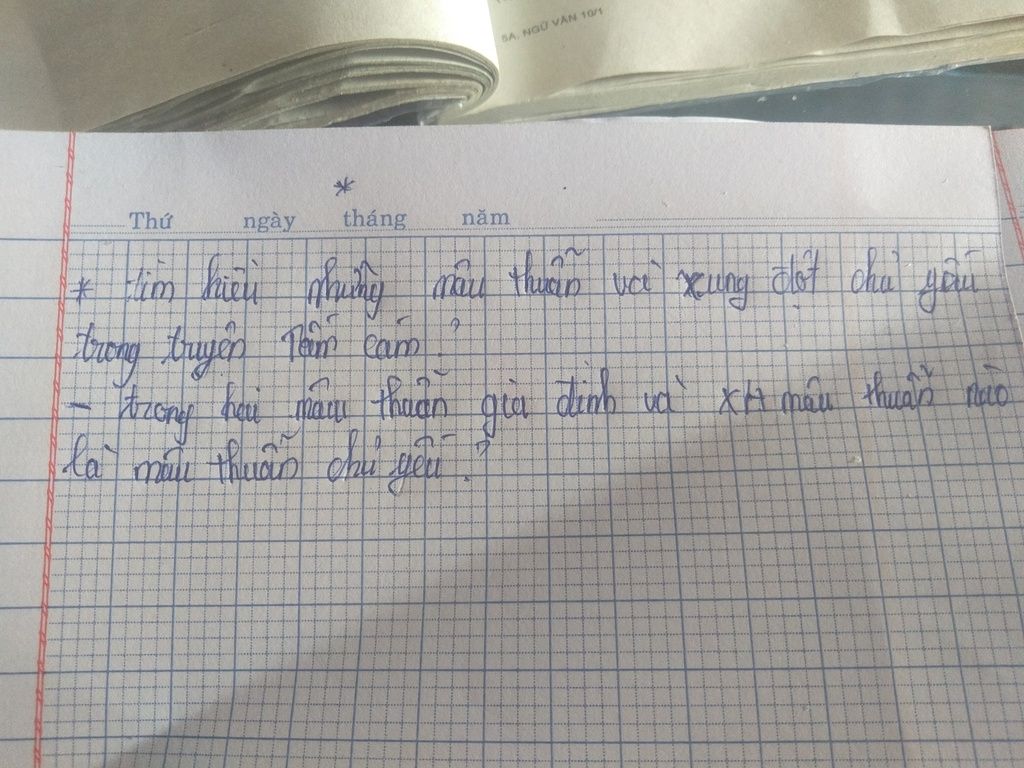 5A. NGỮ VĂN 10/1
*
Thứ ngày tháng năm
* tìm hiểu những mâu thuẫn và xung đột chủ yếu
trong truyện Tấm cám ?
- trong hai mâu thuẫn gia đình và XH mâu thuẫn nào
là mâu thuẫn chủ yếu ?